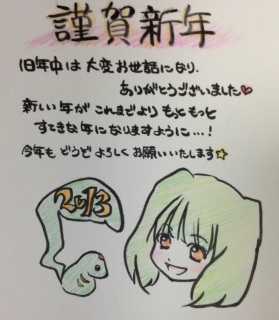 謹賀新年
旧年中は大変お世話になり、
ありがとうございました♥
新しい年がこれまでよりもっともっと
すてきな年になりますように…!
今年もどうぞよろしくお願いいたします☆
2013